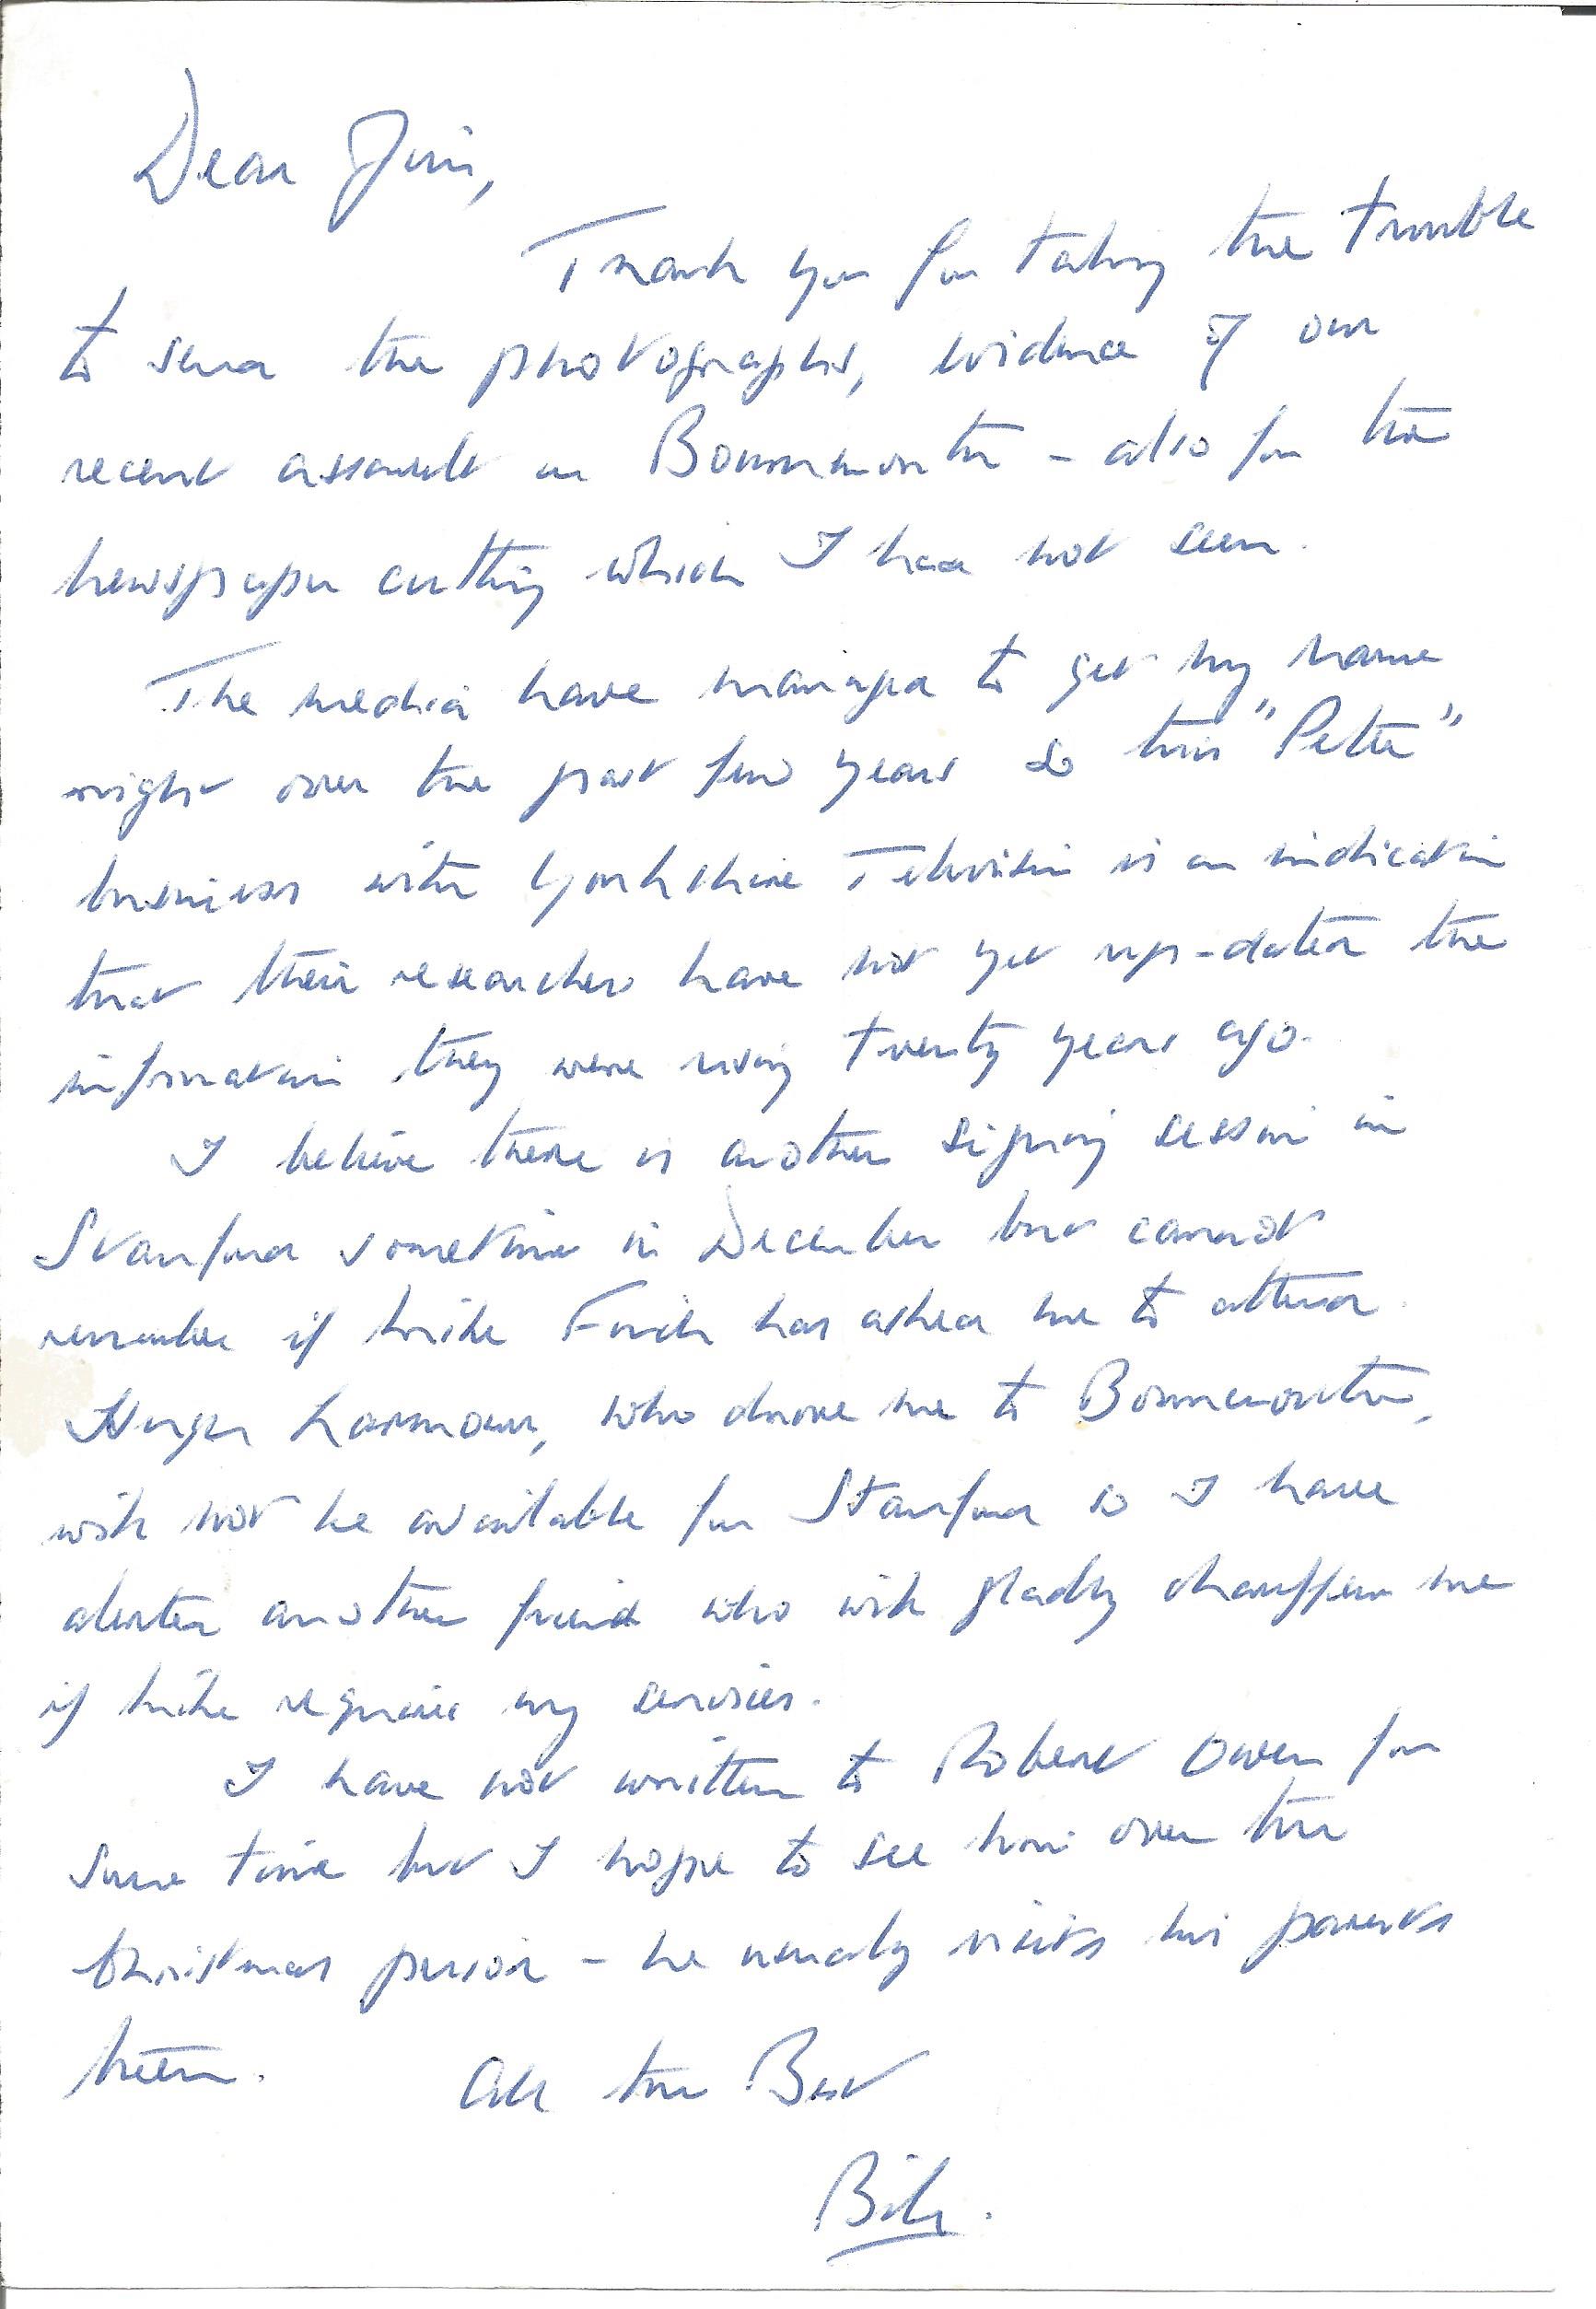 Dear Jim,
Thank you for taking the trouble
to send the photographs, evidence of our
recent assault on Bournemouth - also for the
newspaper cutting which I had not seen.
The media have managed to get my name
right over the past few years so this "Peter"
business with Yorkshire Television is an indication
that their researchers have not yet up-dated the
information they were using twenty years ago.
I believe there is another signing session in
Stanford sometime in December but cannot
remember if Mike Finch has asked me to attend.
who drove me to Bournemouth,
will not be available for Stanford so I have
alerted another friend who will gladly chauffeur me
if Mike requires my services.
I have not written to Robert Owen for
some time but I hope to see him over the
Christmas period - he usually visits his parents
then.
All the Best
Bill.